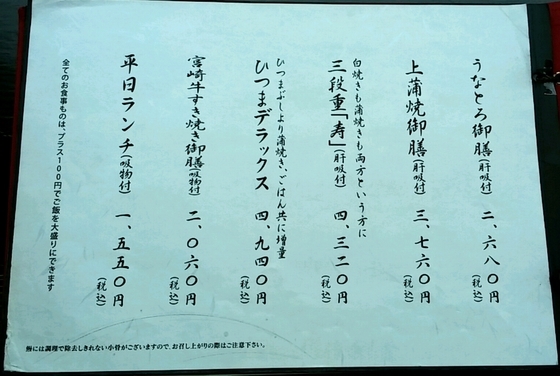 うなとろ御膳(肝吸付) 二、六八〇円(税込)
上蒲焼御膳(肝吸付) 三、七六〇円(税込)
白焼きも蒲焼きも両方という方に
三段重「寿」(肝吸付) 四、三二〇円(税込)
ひつまぶしより蒲焼き、ごはん共に増量
ひつまデラックス 四、九四〇円(税込)
宮崎牛すき焼き御膳(吸物付) 二、〇六〇円(税込)
平日ランチ(吸物付) 一、五五〇円(税込)
全てのお食事ものは、プラス100円でご飯を大盛りにできます
鰻には調理で除去しきれない小骨がございますので、お召し上がりの際はご注意下さい。